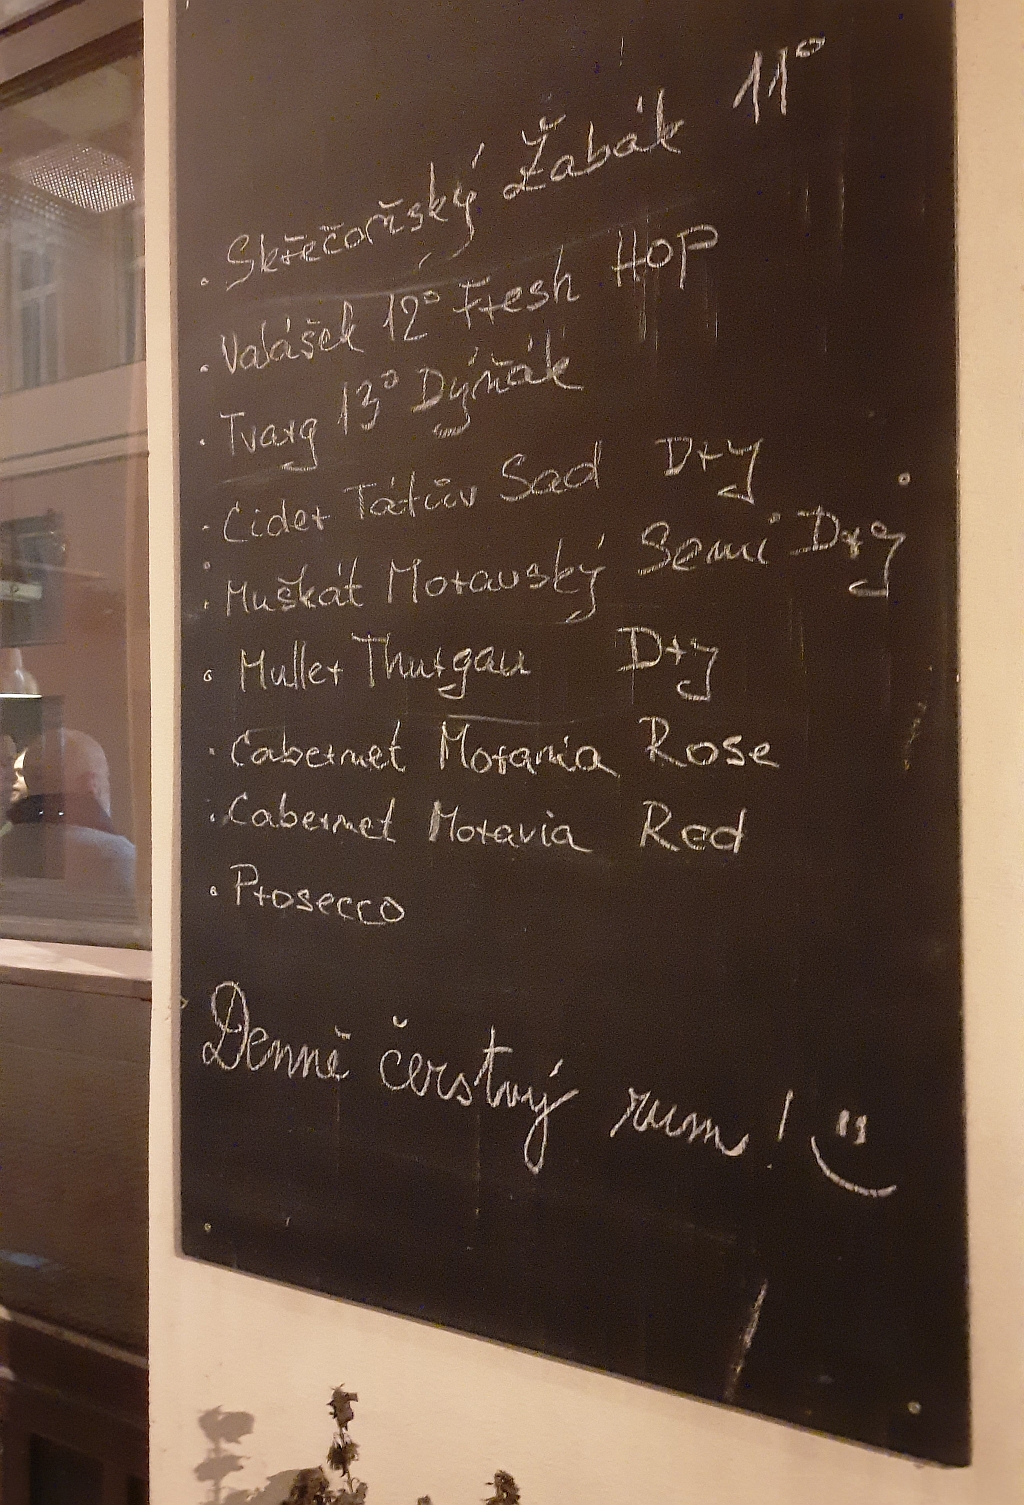 • Skřečoňský Žabák 11°
• Valášek 12° Fresh HOP
• Tvarg 13° Dýňák
• Cider Tátův Sad Dry
• Muškát Moravský Semi Dry
• Muller Thurgau Dry
• Cabernet Moravia Rose
• Cabernet Moravia Red
• Prosecco
Denně čerstvý rum!